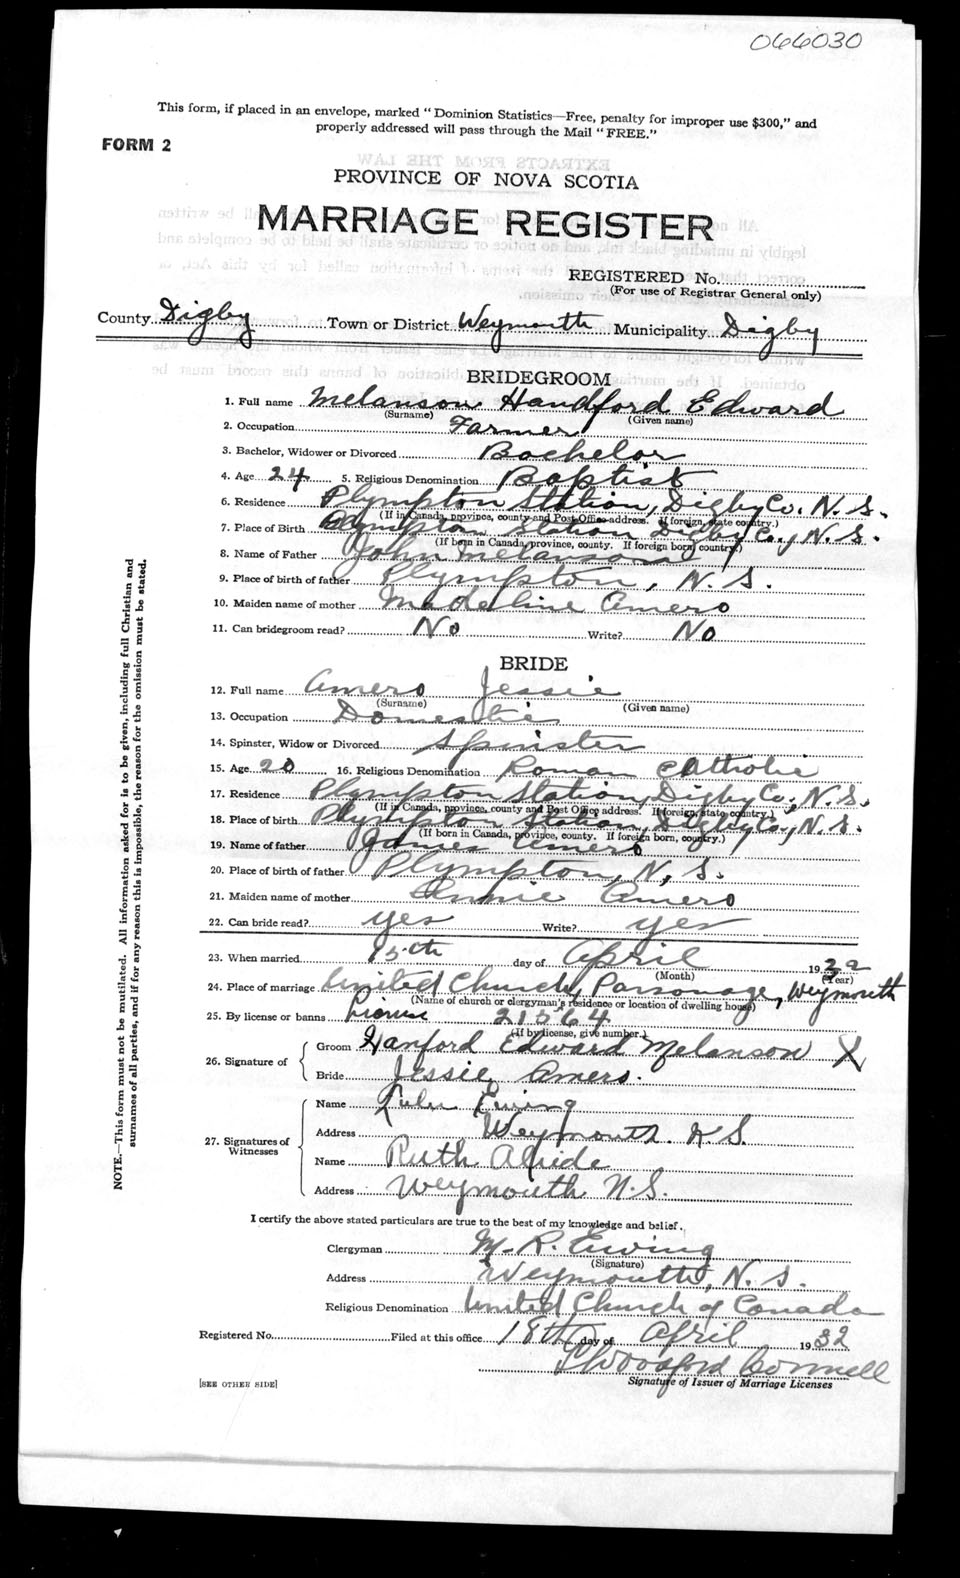 066030
This form, if placed in an envelope, marked "Dominion Statistics—Free, penalty for improper use $300," and
properly addressed will pass through the Mail "FREE."
FORM 2
PROVINCE OF NOVA SCOTIA
MARRIAGE REGISTER
REGISTERED No.
(For use of Registrar General only)
County Digby Town or District Weymouth Municipality Digby
BRIDEGROOM
1. Full name Melanson Handford Edward
(Surname) (Given name)
2. Occupation Farmer
3. Bachelor, Widower or Divorced Bachelor
4. Age 24 5. Religious Denomination Baptist
6. Residence Plympton Station, Digby Co. N. S.
(If in Canada, province, county and Post Office address. If foreign, state country.)
7. Place of Birth Plympton Station Digby Co., N. S.
(If born in Canada, province, county. If foreign born, country)
8. Name of Father John Melanson
9. Place of birth of father Plympton, N. S.
10. Maiden name of mother Madeline Amero
11. Can bridegroom read? No Write? No
BRIDE
12. Full name Amero Jessie
(Surname) (Given name)
13. Occupation Domestic
14. Spinster, Widow or Divorced Spinster
15. Age 20 16. Religious Denomination Roman Catholic
17. Residence Plympton Station, Digby Co., N. S.
(If in Canada, province, county and Post Office address. If foreign, state country.)
18. Place of birth Plympton Station, Digby Co., N. S.
(If born in Canada, province, county. If foreign born, country.)
19. Name of father James Amero
20. Place of birth of father Plympton, N. S.
21. Maiden name of mother Annie Amero
22. Can bride read? yes Write? yes
23. When married 15th day of April 1932
(Month) (Year)
24. Place of marriage United Church Parsonage, Weymouth
(Name of church or clergyman's residence or location of dwelling house)
25. By license or banns License 21564
(If by license, give number.)
26. Signature of
Groom Hanford Edward Melanson X
Bride Jessie Amero.
27. Signatures of Witnesses
Name Lulu Ewing
Address Weymouth. N S.
Name Ruth
Address Weymouth N.S.
I certify the above stated particulars are true to the best of my knowledge and belief.
Clergyman M. R. Ewing
(Signature)
Address Weymouth, N. S.
Religious Denomination United Church of Canada
Registered No. Filed at this office 18th day of April 1932
Connell
Signature of Issuer of Marriage Licenses
[SEE OTHER SIDE]
NOTE.—This form must not be mutilated. All information asked for is to be given, including full Christian and
surnames of all parties, and if for any reason this is impossible, the reason for the omission must be stated.